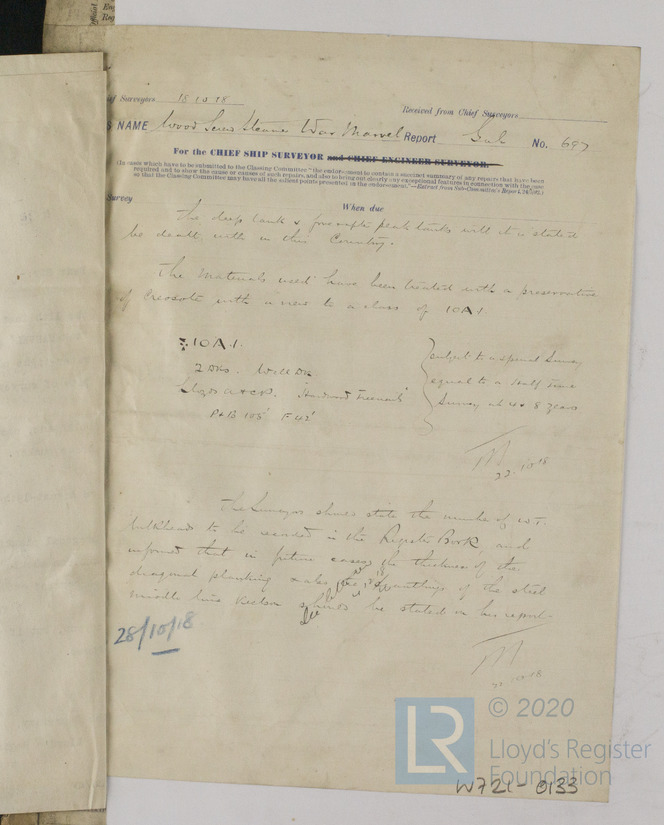 ief Surveyors 18.10.18
Received from Chief Surveyors
S NAME Wood Screw Steamer War Marvel Report Gul No. 697
For the CHIEF SHIP SURVEYOR and CHIEF ENGINEER SURVEYOR.
(In cases which have to be submitted to the Classing Committee "the endorsement to contain a succinct summary of any repairs that have been
required and to show the cause or causes of such repairs, and also to bring out clearly any exceptional features in connection with the case
so that the Classing Committee may have all the salient points presented in the endorsement."
Survey
When due
The deep tank & fore & after peak tanks will it is stated
be dealt with in this Country.
The materials used have been treated with a preservative
of Creosote with a view to a class of 10A1.
10A1.
2 Dks. Well Dk
Lloyds A & CP. "Hardwood Treenails"
P&B 105' F 42'
subject to a special Survey
equal to a half time
Survey at 4 & 8 years
22.10.18
The Surveyor should state the number of W.T.
bulkheads to be recorded in the Register Book, and
informed that in future cases the thickness of the
diagonal planking & also the scantlings of the steel
middle line keelson should be stated in his report
28/10/18
22.10.18
LR
© 2020
Lloyd's Register
Foundation
W721-0133